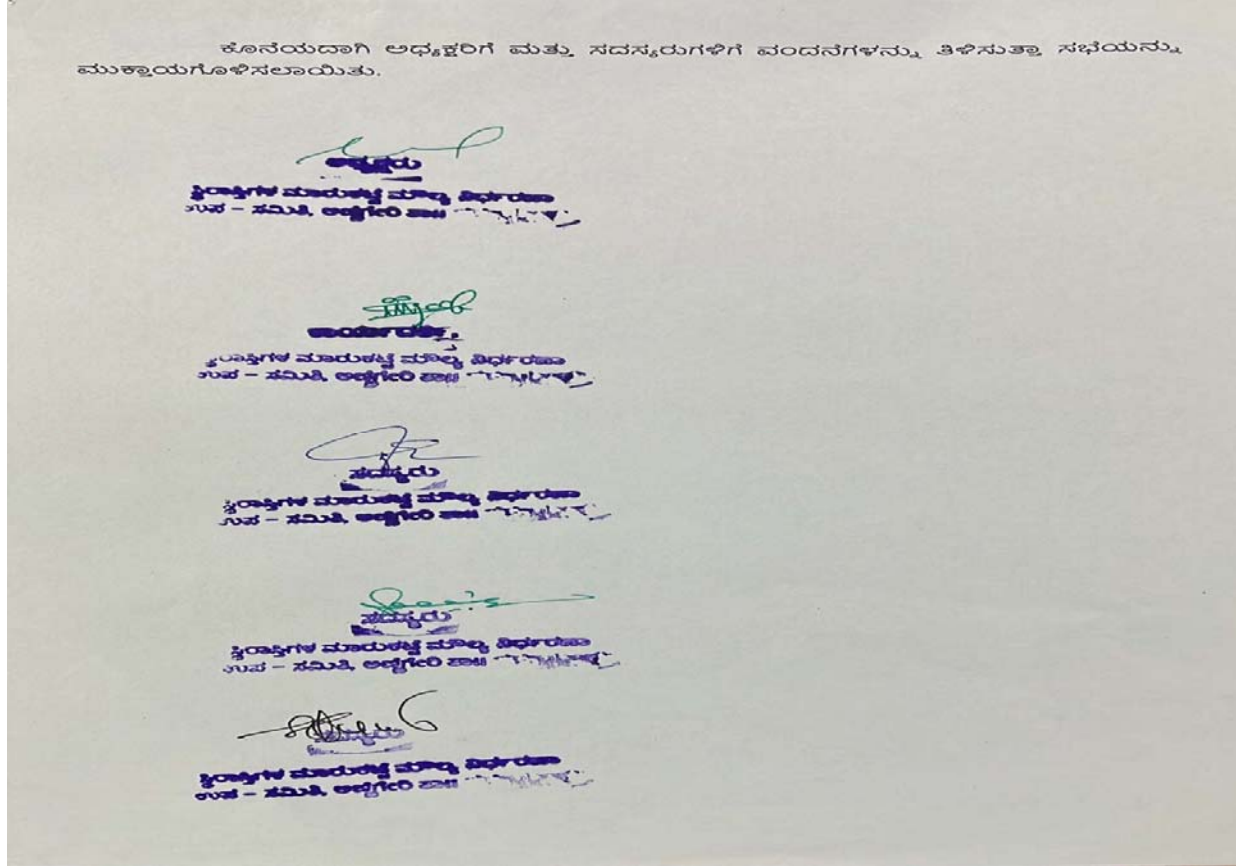 ಕೊನೆಯದಾಗಿ ಅಧ್ಯಕ್ಷರಿಗೆ ಮತ್ತು ಸದಸ್ಯರುಗಳಿಗೆ ವಂದನೆಗಳನ್ನು ತಿಳಿಸುತ್ತಾ ಸಭೆಯನ್ನು
ಮುಕ್ತಾಯಗೊಳಿಸಲಾಯಿತು.
ಅಧ್ಯಕ್ಷರು
ಸ್ಥಿರಾಸ್ತಿಗಳ ಮಾರುಕಟ್ಟೆ ಮೌಲ್ಯ ನಿರ್ಧರಣಾ
ಉಪ – ಸಮಿತಿ, ಅಣ್ಣಿಗೇರಿ
ಕಾರ್ಯದರ್ಶಿ,
ಸ್ಥಿರಾಸ್ತಿಗಳ ಮಾರುಕಟ್ಟೆ ಮೌಲ್ಯ ನಿರ್ಧರಣಾ
ಉಪ – ಸಮಿತಿ, ಅಣ್ಣಿಗೇರಿ
ಸದಸ್ಯರು
ಸ್ಥಿರಾಸ್ತಿಗಳ ಮಾರುಕಟ್ಟೆ ಮೌಲ್ಯ ನಿರ್ಧರಣಾ
ಉಪ – ಸಮಿತಿ, ಅಣ್ಣಿಗೇರಿ
ಸದಸ್ಯರು
ಸ್ಥಿರಾಸ್ತಿಗಳ ಮಾರುಕಟ್ಟೆ ಮೌಲ್ಯ ನಿರ್ಧರಣಾ
ಉಪ – ಸಮಿತಿ, ಅಣ್ಣಿಗೇರಿ
ಸದಸ್ಯರು
ಸ್ಥಿರಾಸ್ತಿಗಳ ಮಾರುಕಟ್ಟೆ ಮೌಲ್ಯ ನಿರ್ಧರಣಾ
ಉಪ – ಸಮಿತಿ, ಅಣ್ಣಿಗೇರಿ